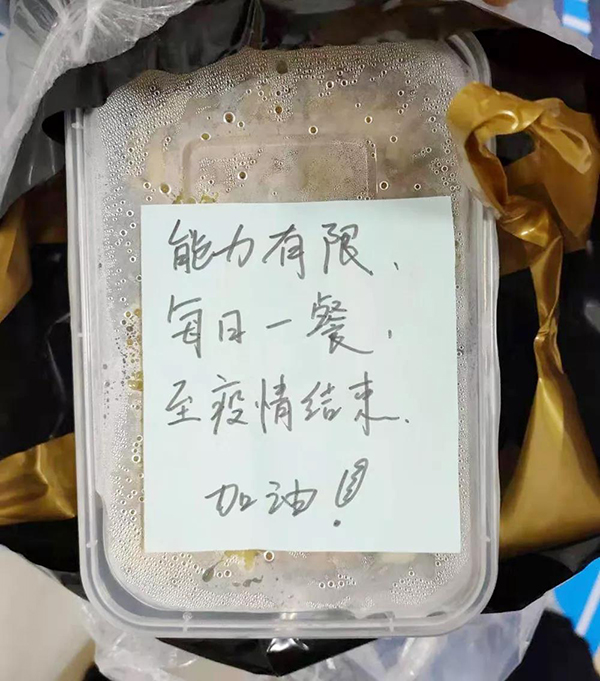 能力有限、
每日一餐、
至疫情结束.
加油!